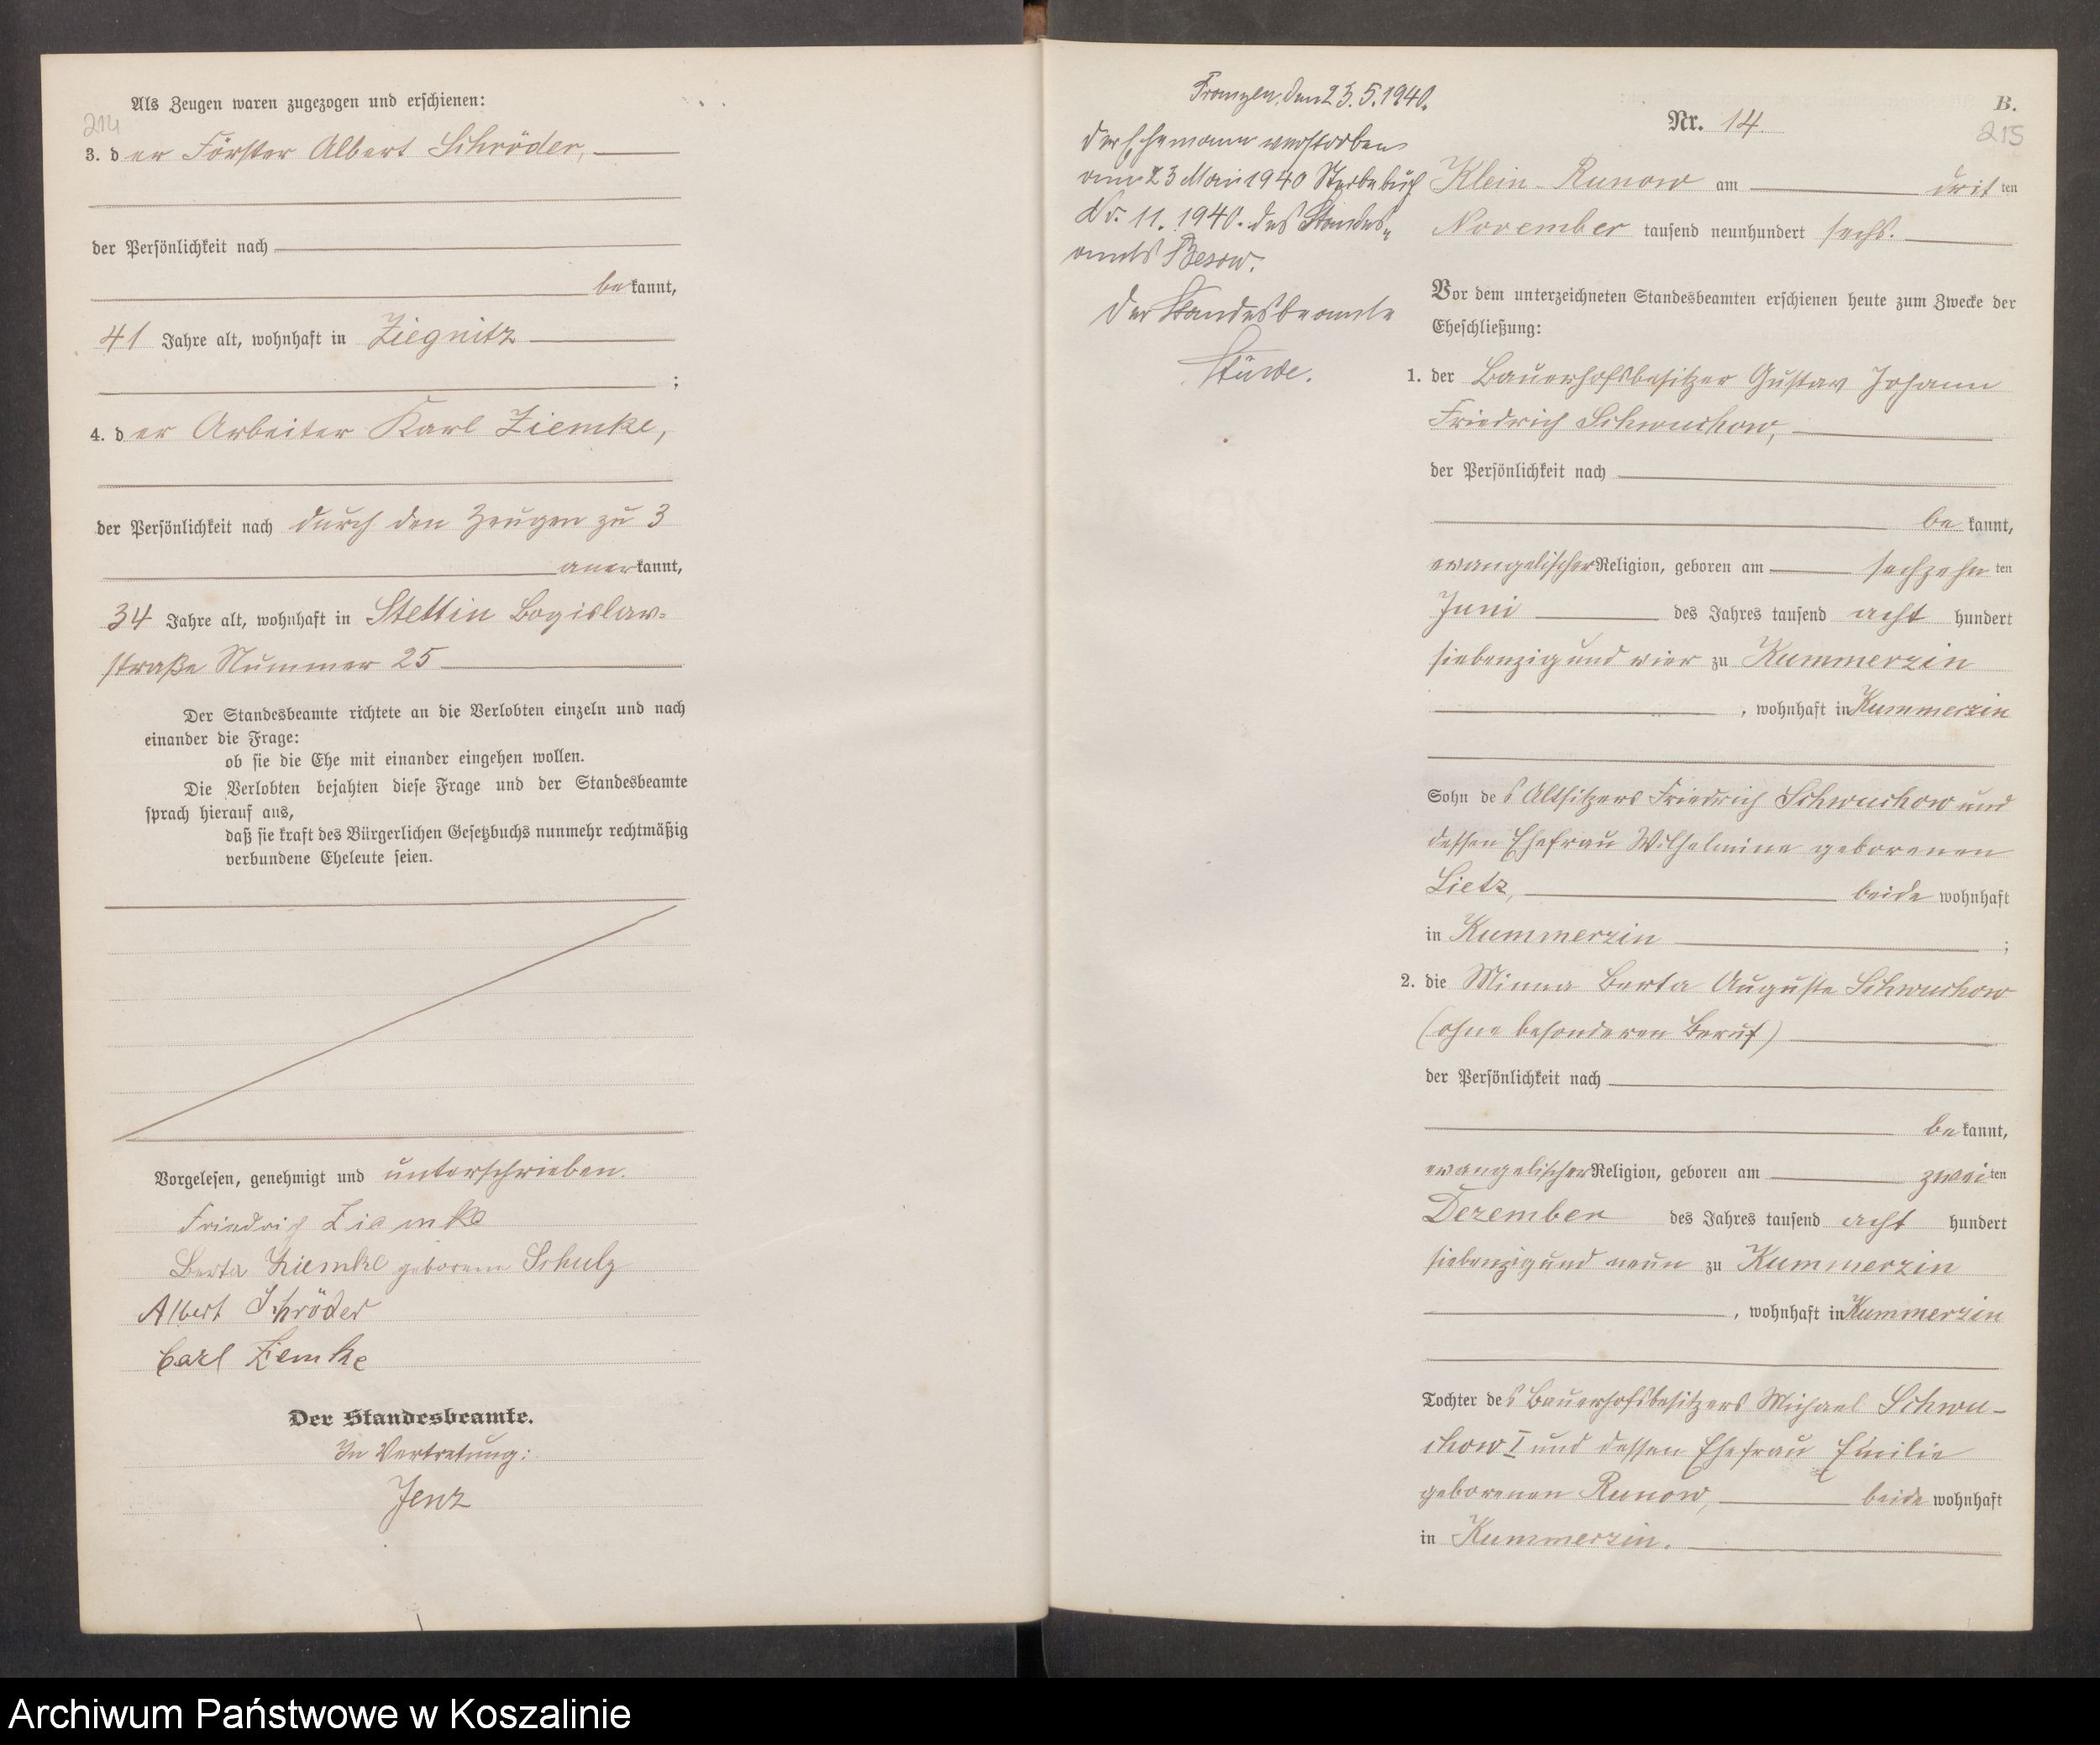 214
Als Zeugen waren zugezogen und erschienen:
3. der Förster Albert Schröder,
der Persönlichkeit nach
bekannt,
41 Jahre alt, wohnhaft in Ziegnitz
;
4. der Arbeiter Karl Ziemke,
der Persönlichkeit nach durch den Zeugen zu 3
anerkannt,
34 Jahre alt, wohnhaft in Stettin Bogislav=
straße Nummer 25
Der Standesbeamte richtete an die Verlobten einzeln und nach
einander die Frage:
ob sie die Ehe mit einander eingehen wollen.
Die Verlobten bejahten diese Frage und der Standesbeamte
sprach hierauf aus,
daß sie kraft des Bürgerlichen Gesetzbuchs nunmehr rechtmäßig
verbundene Eheleute seien.
Vorgelesen, genehmigt und unterschrieben.
Friedrich Ziemke
Berta Ziemke geborene Schulz
Albert Schröder
Carl Ziemke
Der Standesbeamte.
In Vertretung:
Jenz
den 23.5.1940.
Der Ehemann verstorben
am 23 Mai 1940 Sterbebuch
Nr. 11. 1940. des Standes„
amts Besow.
Der Standesbeamte
Stüwe.
B.
Nr. 14.
215
Klein-Runow am dritten
November tausend neunhundert sechs.
Vor dem unterzeichneten Standesbeamten erschienen heute zum Zwecke der
Eheschließung:
1. der Bauerhofsbesitzer Gustav Johann
Friedrich Schwuchow,
der Persönlichkeit nach
bekannt,
evangelischer Religion, geboren am sechzehnten
Juni des Jahres tausend acht hundert
siebenzig und vier zu Kummerzin
, wohnhaft in Kummerzin
Sohn des Altsitzers Friedrich Schwuchow und
dessen Ehefrau Wilhelmine geborenen
Lietz, beide wohnhaft
in Kummerzin ;
2. die Minna Berta Auguste Schwuchow
(ohne besonderen Beruf)
der Persönlichkeit nach
bekannt,
evangelischer Religion, geboren am zweiten
Dezember des Jahres tausend acht hundert
siebenzig und neun zu Kummerzin
, wohnhaft in Kummerzin
Tochter des Bauerhofsbesitzers Michael Schwu-
chow I und dessen Ehefrau Emilie
geborenen Runow, beide wohnhaft
in Kummerzin.
Archiwum Państwowe w Koszalinie